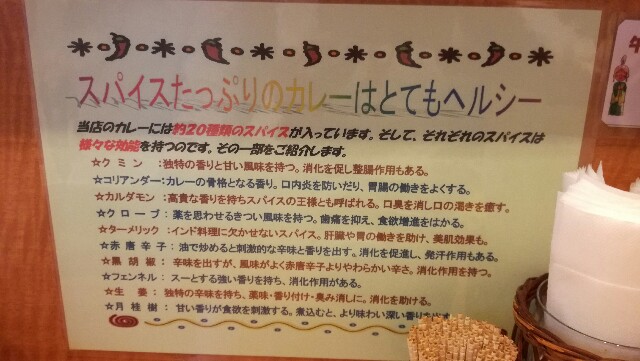 スパイスたっぷりのカレーはとてもヘルシー
当店のカレーには約20種類のスパイスが入っています。そして、それぞれのスパイスは
様々な効能を持つのです。その一部をご紹介します。
☆クミン：独特の香りと甘い風味を持つ。消化を促し整腸作用もある。
☆コリアンダー：カレーの骨格となる香り。口内炎を防いだり、胃腸の働きをよくする。
☆カルダモン：高貴な香りを持ちスパイスの王様とも呼ばれる。口臭を消し口の渇きを癒す。
☆クローブ：薬を思わせるきつい風味を持つ。歯痛を抑え、食欲増進をはかる。
☆ターメリック：インド料理に欠かせないスパイス。肝臓や胃の働きを助け、美肌効果も。
☆赤唐辛子：油で炒めると刺激的な辛味と香りを出す。消化を促進し、発汗作用もある。
☆黒胡椒：辛味を出すが、風味がよく赤唐辛子よりやわらかい辛さ。消化作用を持つ。
☆フェンネル：スーとする強い香りを持ち、消化作用がある。
☆生姜：独特の辛味を持ち、薬味・香り付け・臭み消しに。消化を助ける。
☆月桂樹：甘い香りが食欲を刺激する。煮込むと、より味わい深い香りを出す